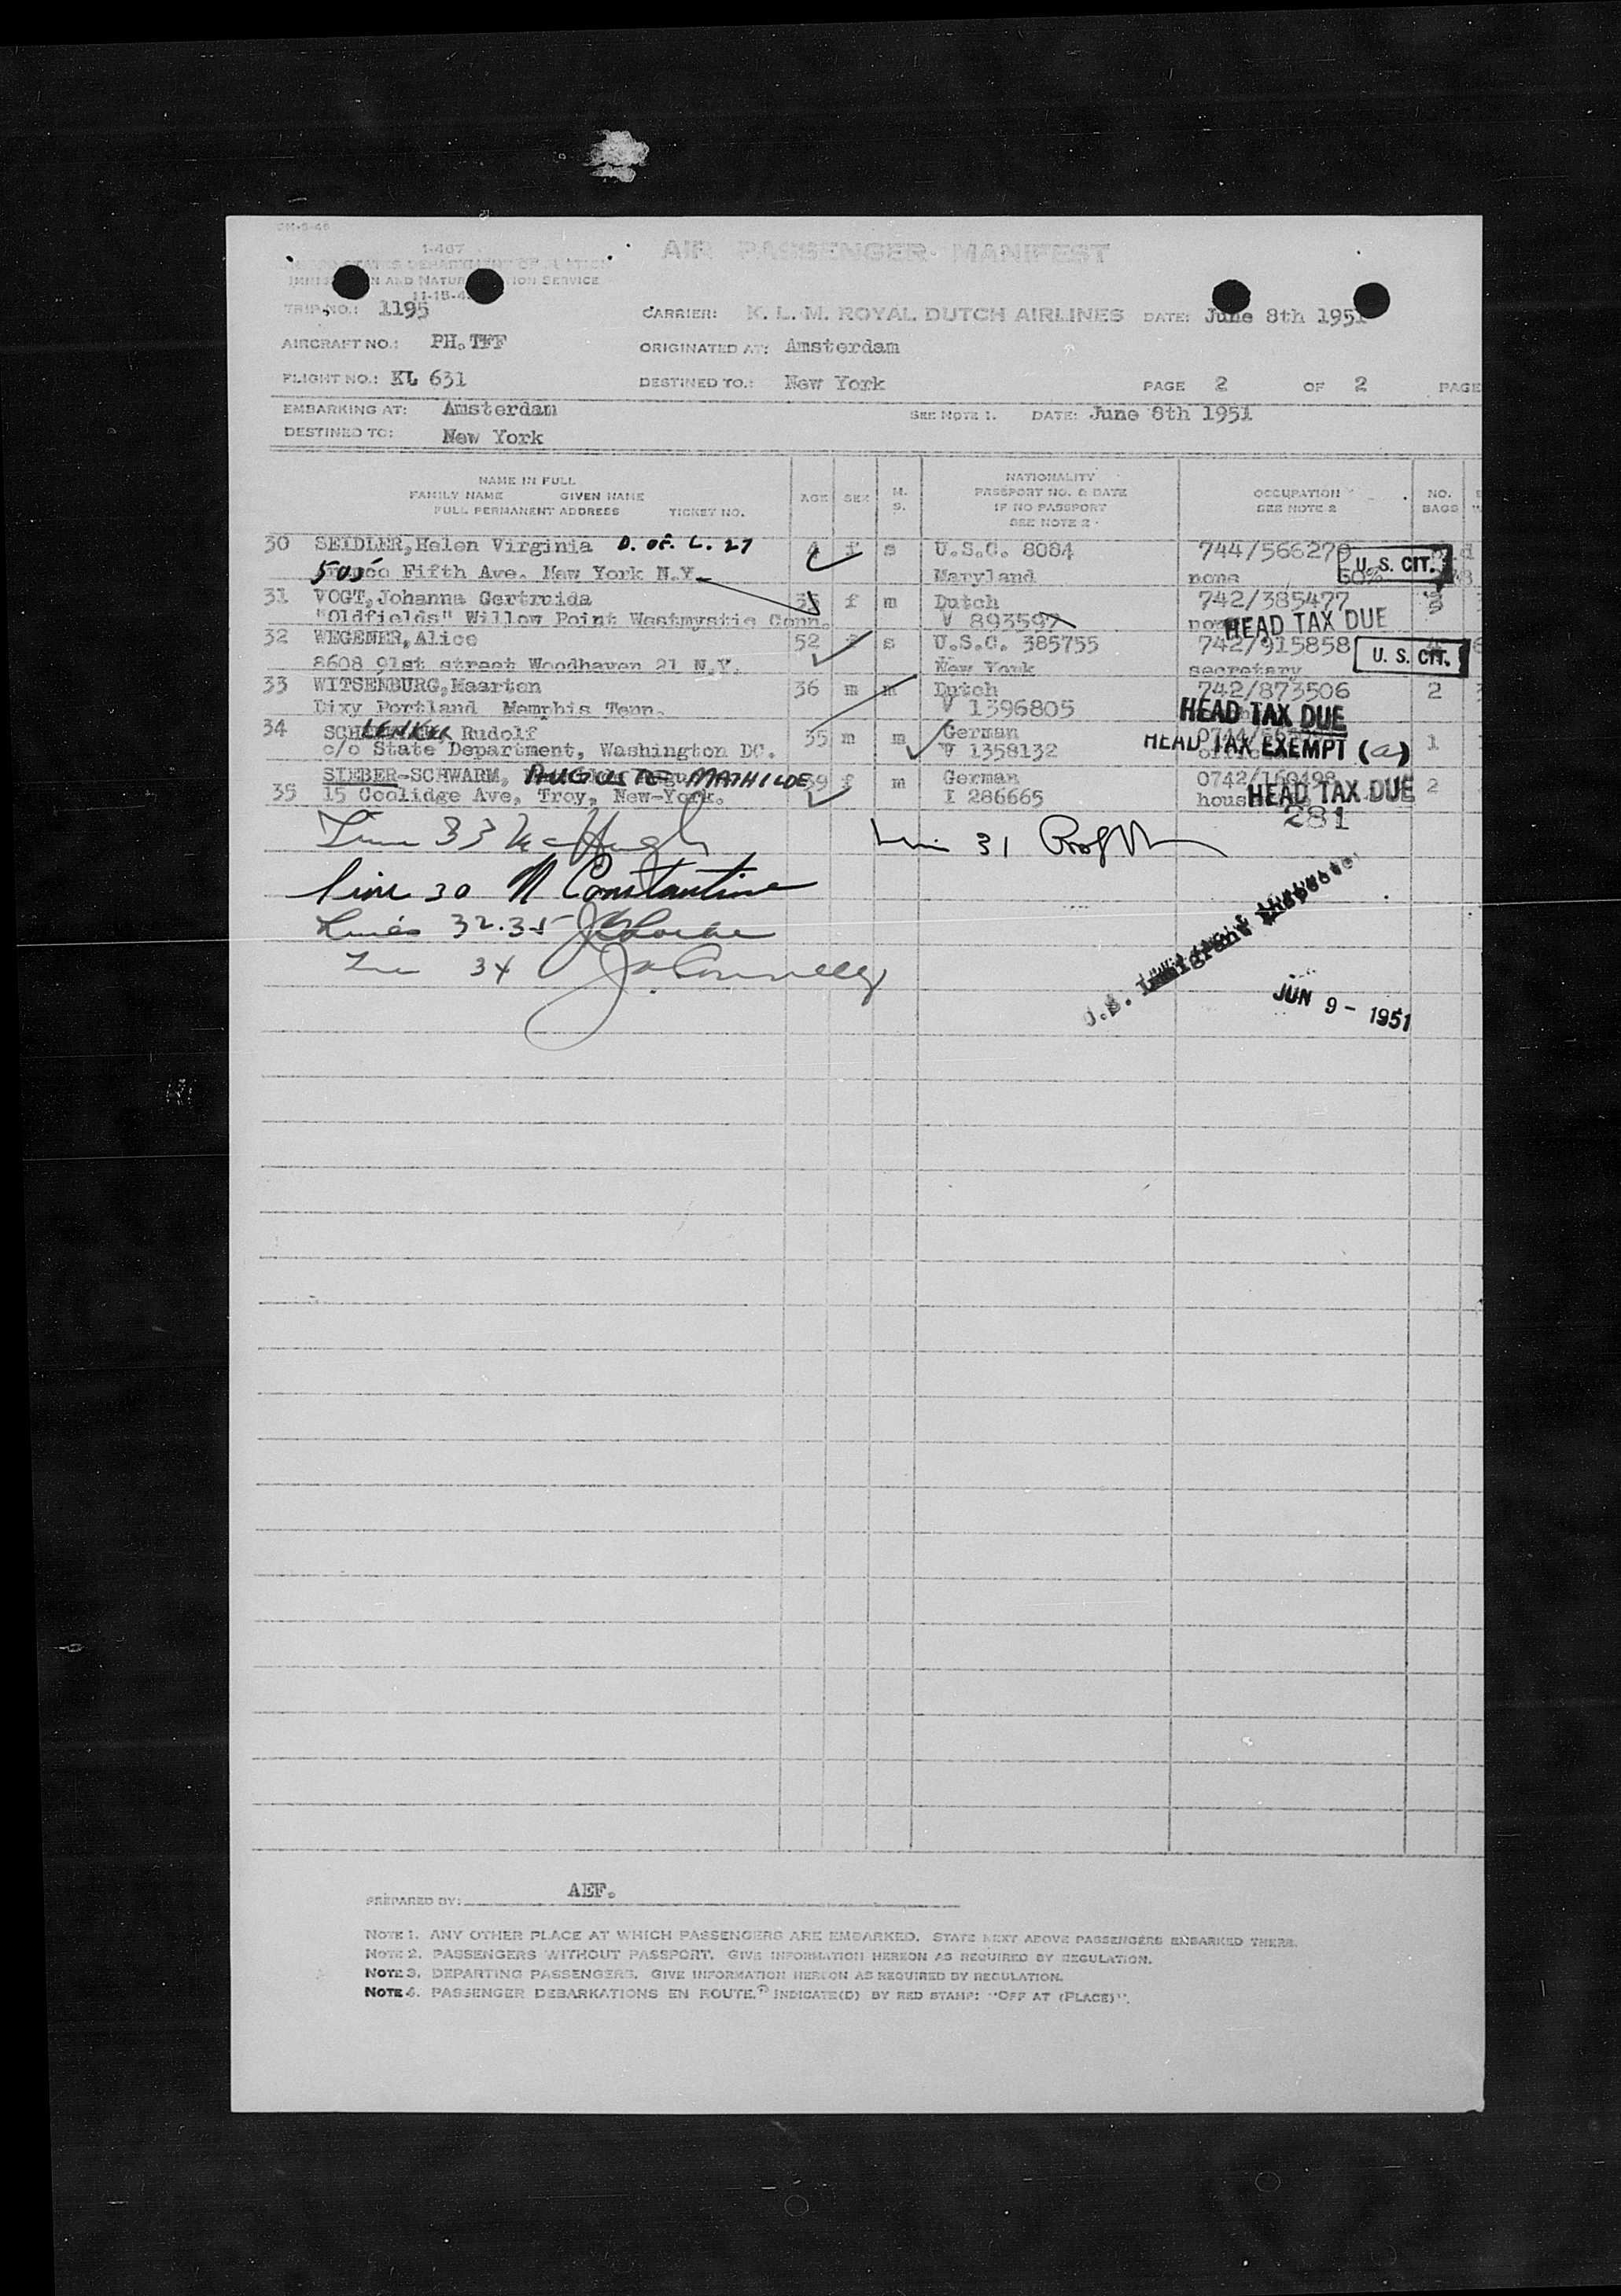 AIR PASSENGER MANIFEST
1-407
UNITED STATES DEPARTMENT OF JUSTICE
IMMIGRATION AND NATURALIZATION SERVICE
11-18-4
TRIP NO.: 1195
CARRIER: K. L. M. ROYAL DUTCH AIRLINES DATE: June 8th 1951
AIRCRAFT NO.: PH. TFF
ORIGINATED AT: Amsterdam
FLIGHT NO.: KL 631
DESTINED TO.: New York PAGE 2 OF 2 PAGE
EMBARKING AT: Amsterdam SEE NOTE 1. DATE: June 8th 1951
DESTINED TO: New York
NAME IN FULL
FAMILY NAME GIVEN NAME
FULL PERMANENT ADDRESS TICKET NO.
AGE SEX M. S.
NATIONALITY
PASSPORT NO. & DATE
IF NO PASSPORT
SEE NOTE 2
OCCUPATION
SEE NOTE 2
NO. BAGS
30 SEIDLER, Helen Virginia D. of. L. 27 4 f s U.S.C. 8084 744/566270
505 Fifth Ave. New York N.Y. Maryland none 50% U. S. CIT.
31 VOGT, Johanna Gertruida 35 f m Dutch 742/385477 3
"Oldfields" Willow Point Westmystic Conn. V 893597 HEAD TAX DUE
32 WEGENER, Alice 52 f s U.S.C. 385755 742/915858
8608 91st street Woodhaven 21 N.Y. New York secretary U. S. CIT.
33 WITSENBURG, Maarten 36 m m Dutch 742/873506 2
Dixy Portland Memphis Tenn. V 1396805 HEAD TAX DUE
34 SCHLENKER Rudolf 35 m m German
c/o State Department, Washington DC. V 1358132 HEAD TAX EXEMPT (a) 1
SIEBER-SCHWARM, AUGUSTE MATHILDE 39 f m German 0742/160498 2
35 15 Coolidge Ave, Troy, New-York. I 286665 HEAD TAX DUE
281
Line 33 McHugh
Line 31
Line 30 N Constantine
Lines 32.35
Line 34 J Connelly
U.S. Immigrant Inspector
JUN 9 - 1951
PREPARED BY: AEF.
NOTE 1. ANY OTHER PLACE AT WHICH PASSENGERS ARE EMBARKED. STATE NEXT ABOVE PASSENGERS EMBARKED THERE.
NOTE 2. PASSENGERS WITHOUT PASSPORT. GIVE INFORMATION HEREON AS REQUIRED BY REGULATION.
NOTE 3. DEPARTING PASSENGERS. GIVE INFORMATION HEREON AS REQUIRED BY REGULATION.
NOTE 4. PASSENGER DEBARKATIONS EN ROUTE. INDICATE(D) BY RED STAMP: "OFF AT (PLACE)".